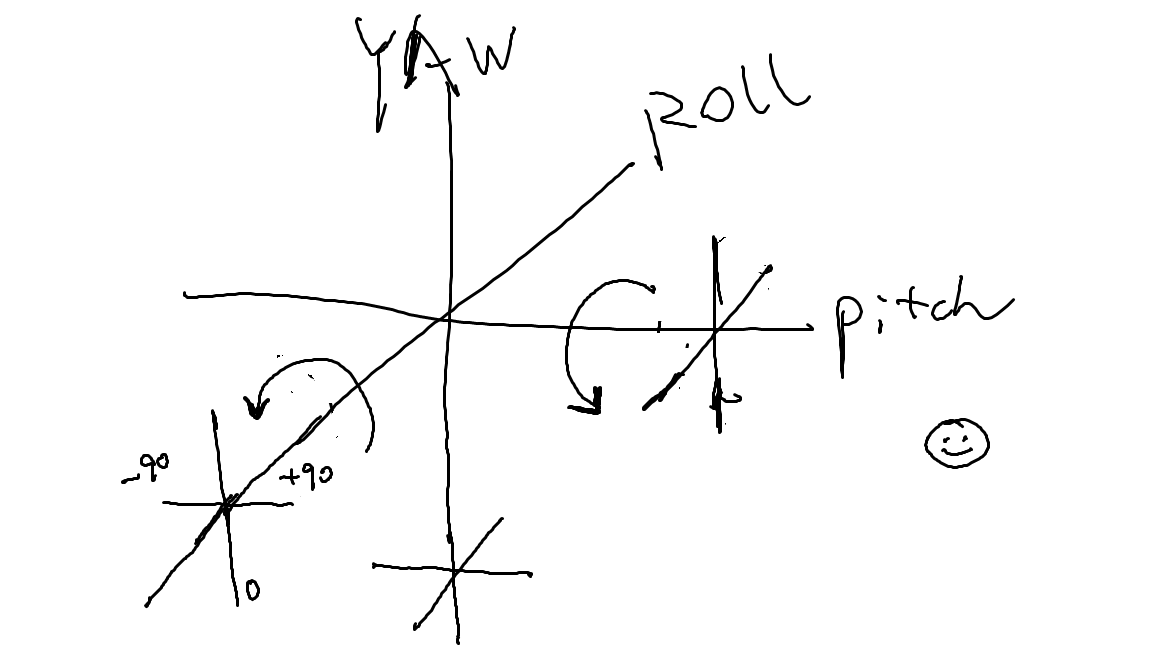 YAW
Roll
pitch
-90
+90
0